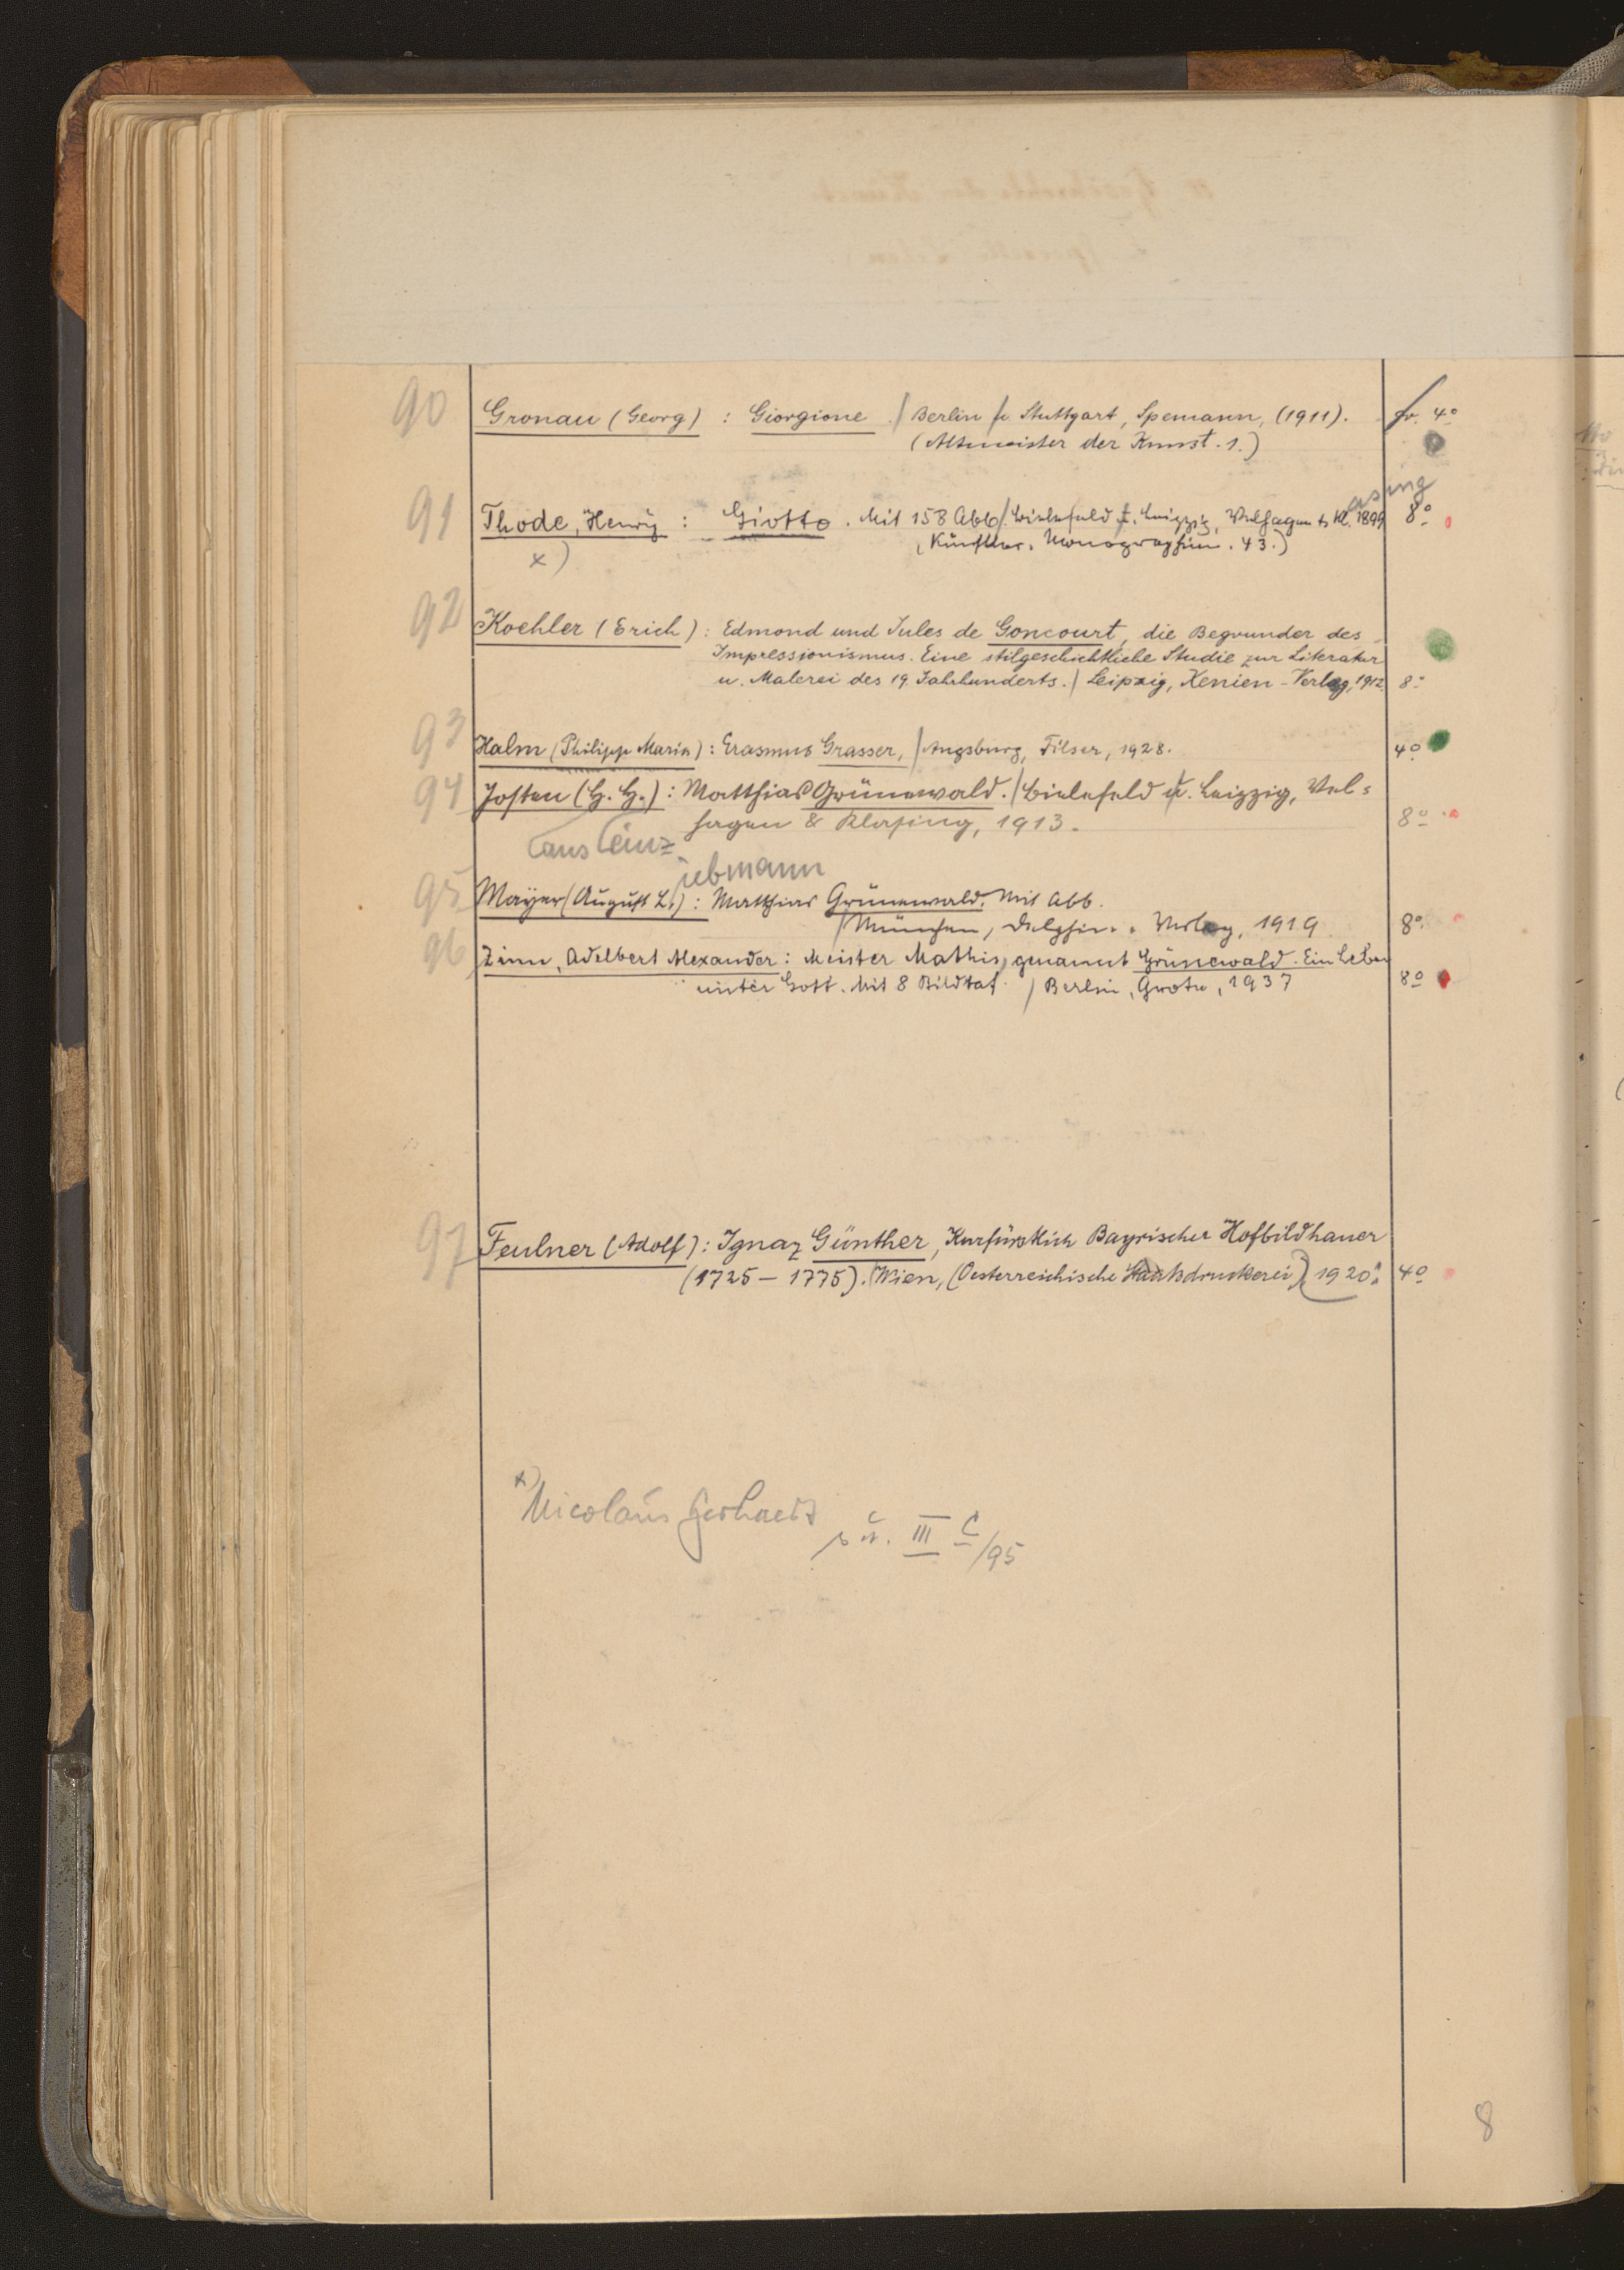 90 Gronau (Georg) : Giorgione. / Berlin u. Stuttgart, Spemann, (1911). gr. 4°
(Altmeister der Kunst. 1.)
asing
91 Thode, Henry : Giotto. Mit 158 Abb. / Bielefeld u. Leipzig, Velhagen & Kl. 1899 8°
x) (Künstler-Monographien. 43.)
92 Koehler (Erich) : Edmond und Jules de Goncourt, die Begrunder des
Impressionismus. Eine stilgeschichtliche Studie zur Literatur
u. Malerei des 19. Jahrhunderts. / Leipzig, Xenien-Verlag, 1912 8°
93 Halm (Philipp Maria) : Erasmus Grasser, / Augsburg, Filser, 1928. 4°
94 Josten (H. H.) : Matthias Grünewald. / Bielefeld u. Leipzig, Vel=
hagen & Klasing, 1913. 8°
95 Mayer (August L.) : Matthias Grünewald. Mit Abb.
/ München, Delphin-Verlag, 1919 8°
96 Zinn, Adelbert Alexander : Meister Mathis, genannt Grünewald. Ein Leben
unter Gott. Mit 8 Bildtaf. / Berlin, Grote, 1937 8°
97 Feulner (Adolf) : Ignaz Günther, Kurfürstlich Bayrischer Hofbildhauer
(1725 – 1775). / Wien, (Oesterreichische Staatsdruckerei) 1920. 4°
x) Nicolaus Gerhaert
III C/95
8